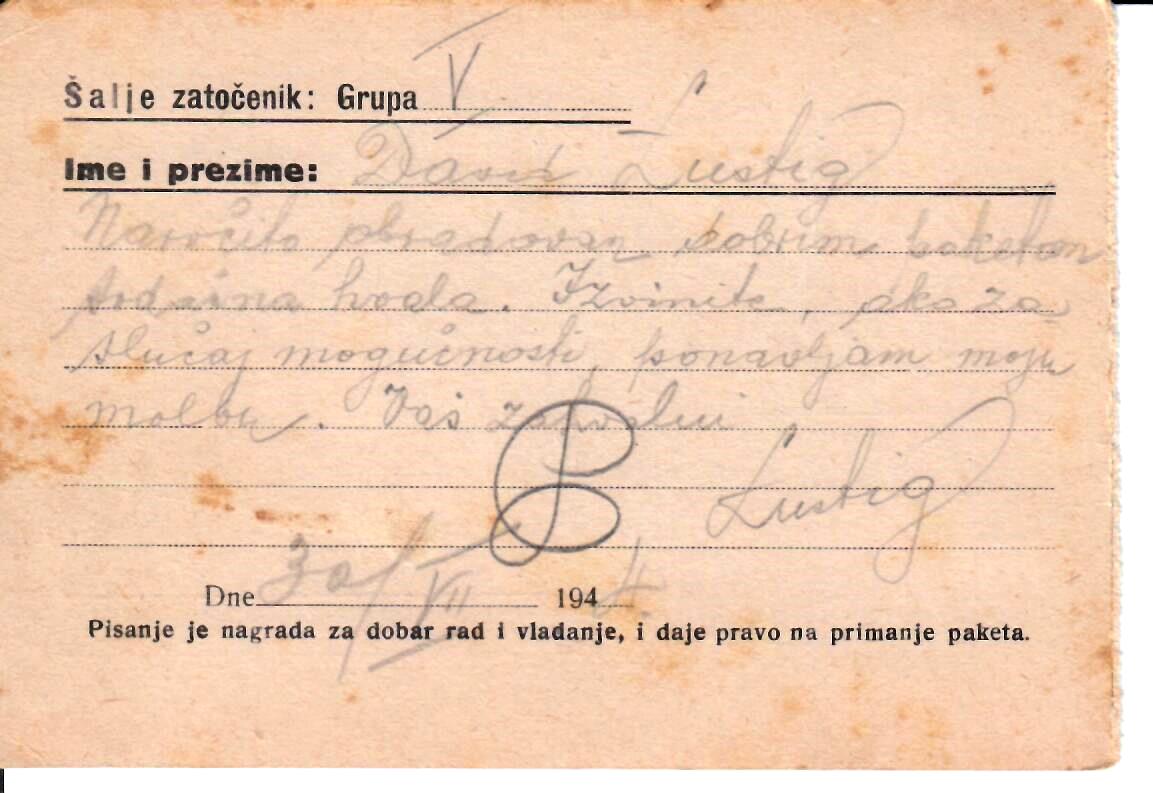 Šalje zatočenik: Grupa V
Ime i prezime: David Lustig
Naročito obradovan dobrim paketom
srdačna hvala. Izvinite, ako za
slučaj mogućnosti, ponavljam moju
molbu. Vaš zahvalni
Lustig
Dne 30/VII 1944.
Pisanje je nagrada za dobar rad i vladanje, i daje pravo na primanje paketa.